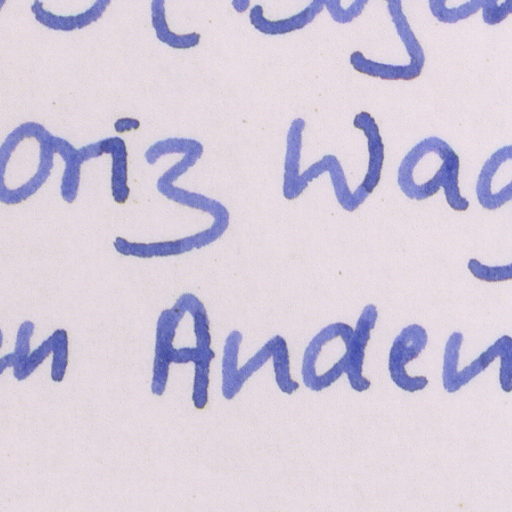 oriz Wag
en Anden